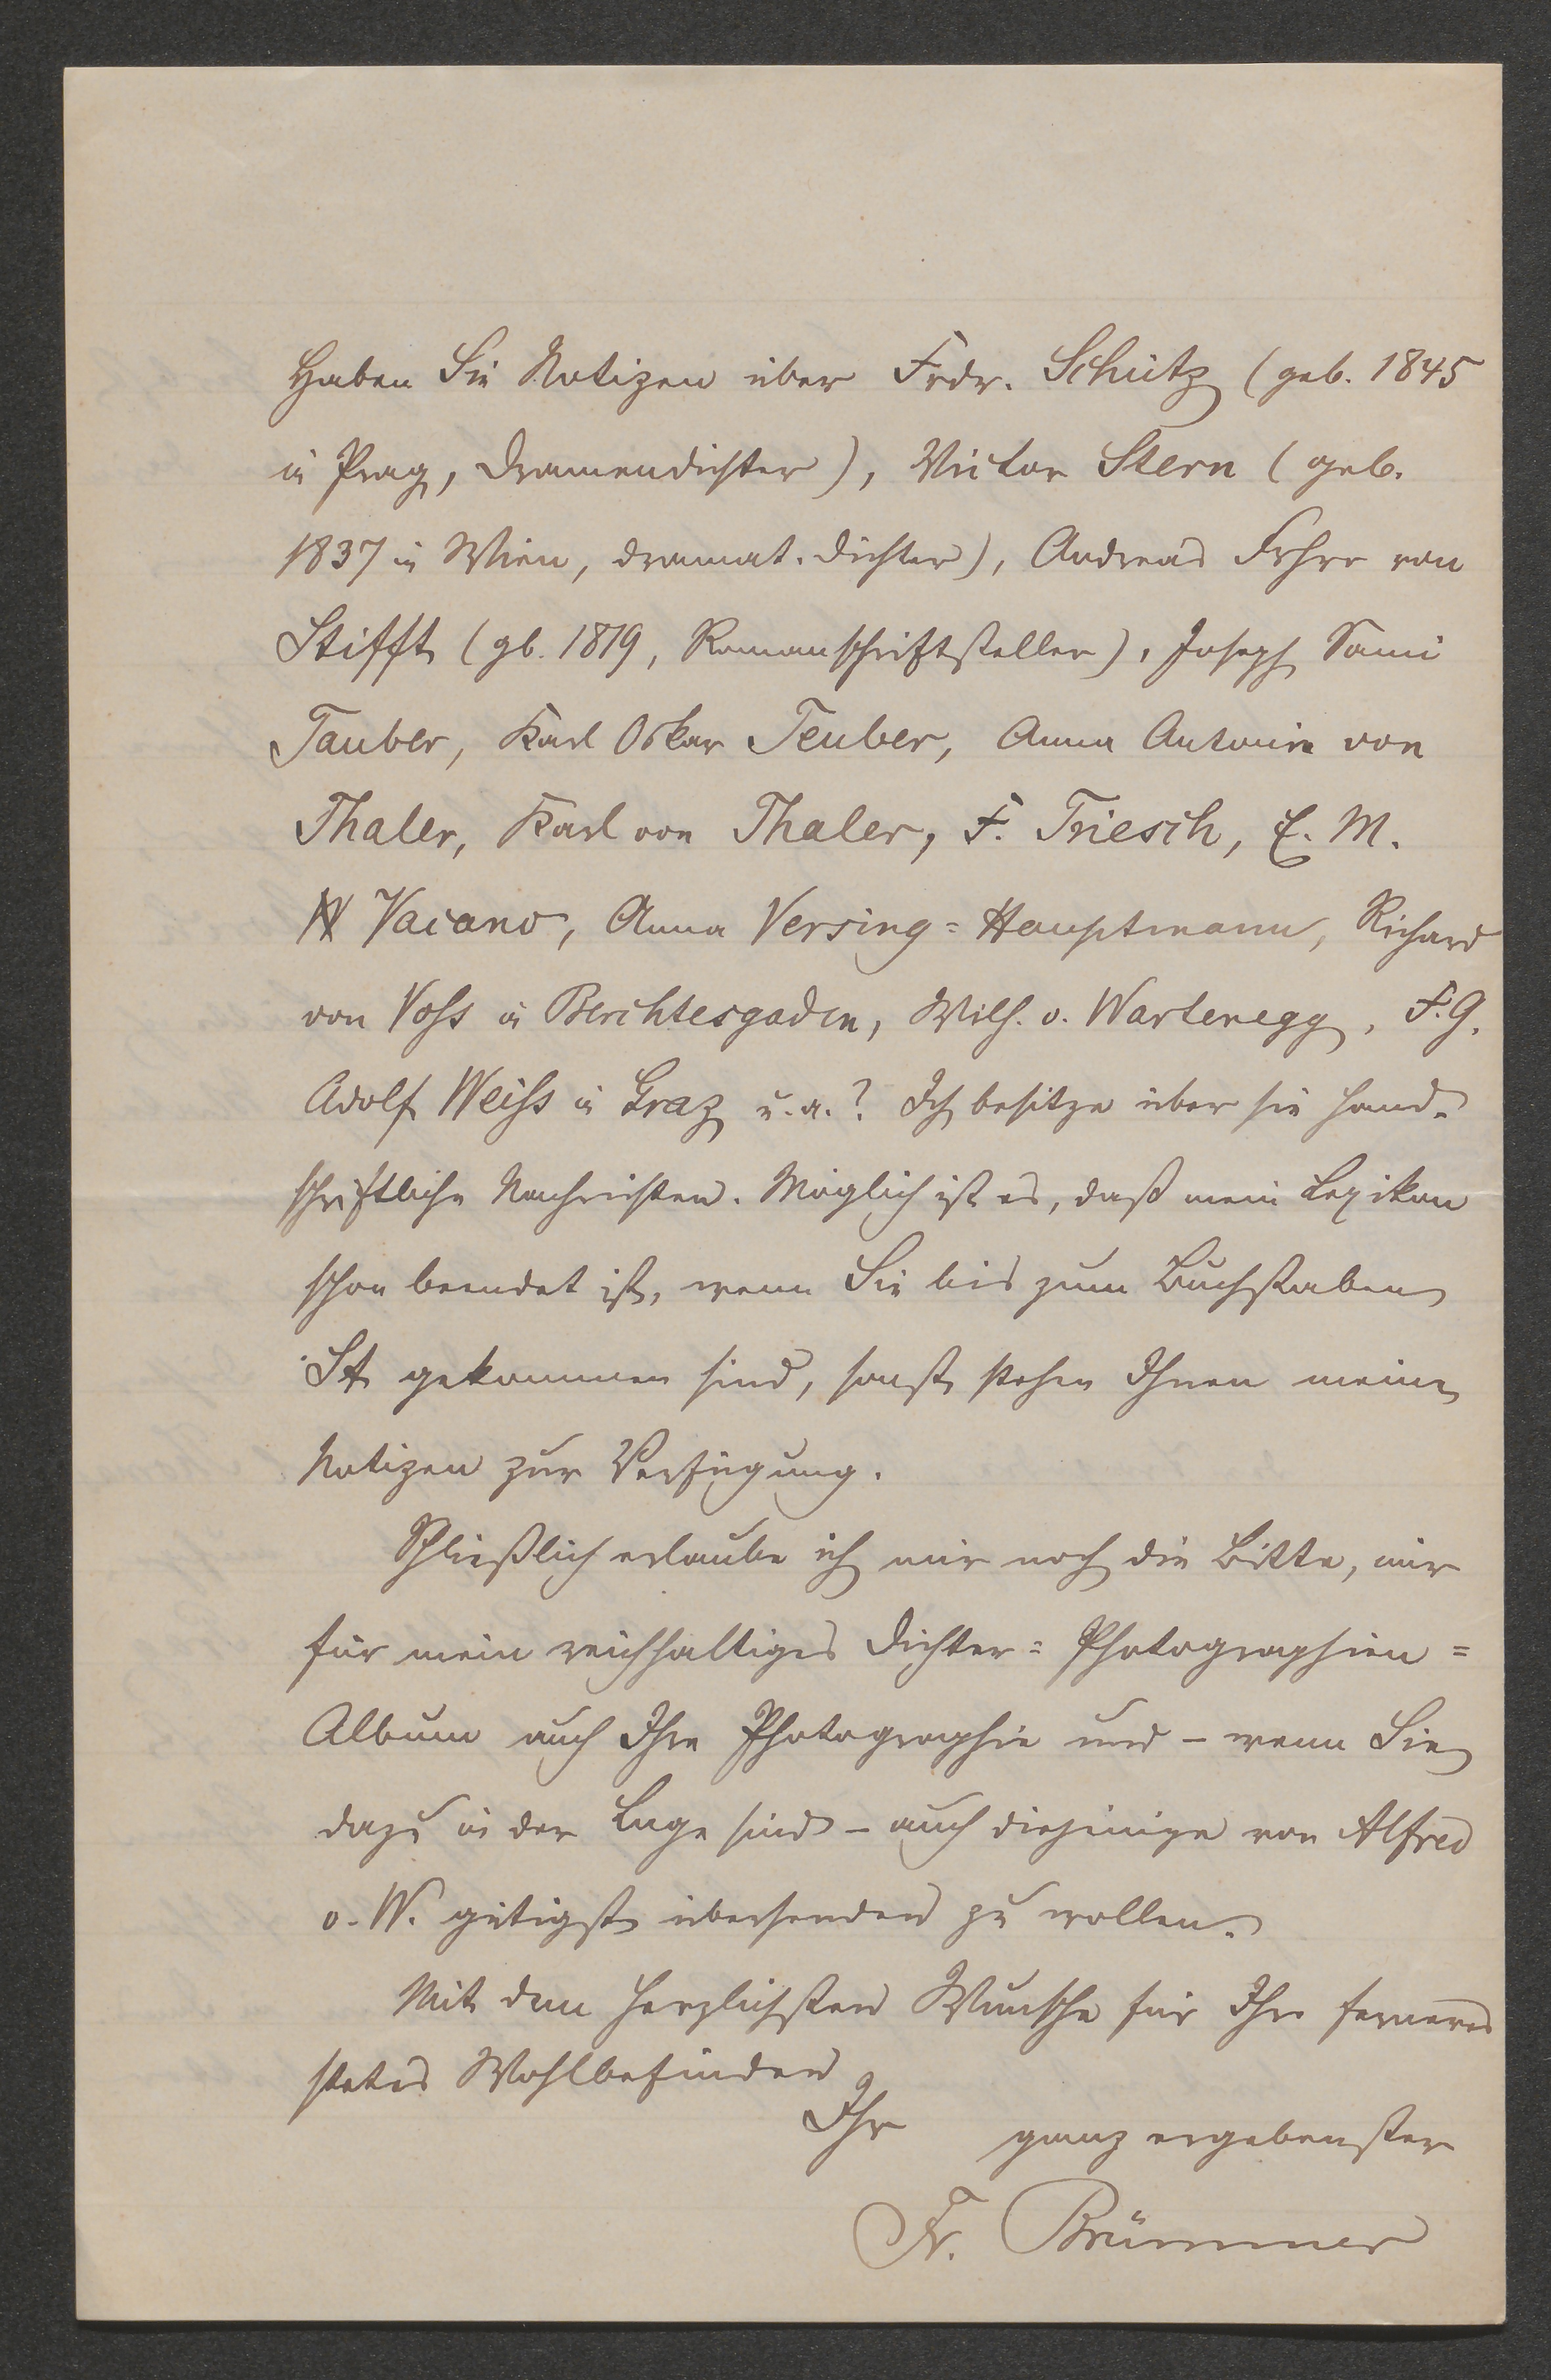 Haben Sie Notizen über Frdr. Schütz (geb. 1845
in Prag, Dramendichter), Victor Stern (geb.
1837 in Wien, dramat. Dichter), Andreas Frhr von
Stifft (gb. 1819, Romanschriftsteller), Joseph Sami
Tauber, Karl Oskar Teuber, Anna Antonie von
Thaler, Karl von Thaler, F. Triesch, E. M.
Vacano, Anna Versing=Hauptmann, Richard
von Voß in Berchtesgaden, Wilh. v. Wartenegg, F. G.
Adolf Weiß in Graz u. a.? Ich besitze über sie hand-
schriftliche Nachrichten. Möglich ist es, daß mein Lexikon
schon beendet ist, wenn Sie bis zum Buchstaben
St gekommen sind, sonst stehen Ihnen meine
Notizen zur Verfügung.
Schließlich erlaube ich mir noch die Bitte, mir
für mein reichhaltiges Dichter=Photographien=
Album auch Ihre Photographie und – wenn Sie
dazu in der Lage sind – auch diejenige von Alfred
v. W. gütigst übersenden zu wollen.
Mit dem herzlichsten Wunsche für Ihr ferneres
stetes Wohlbefinden
Ihr ganz ergebenster
Fr. Brümmer